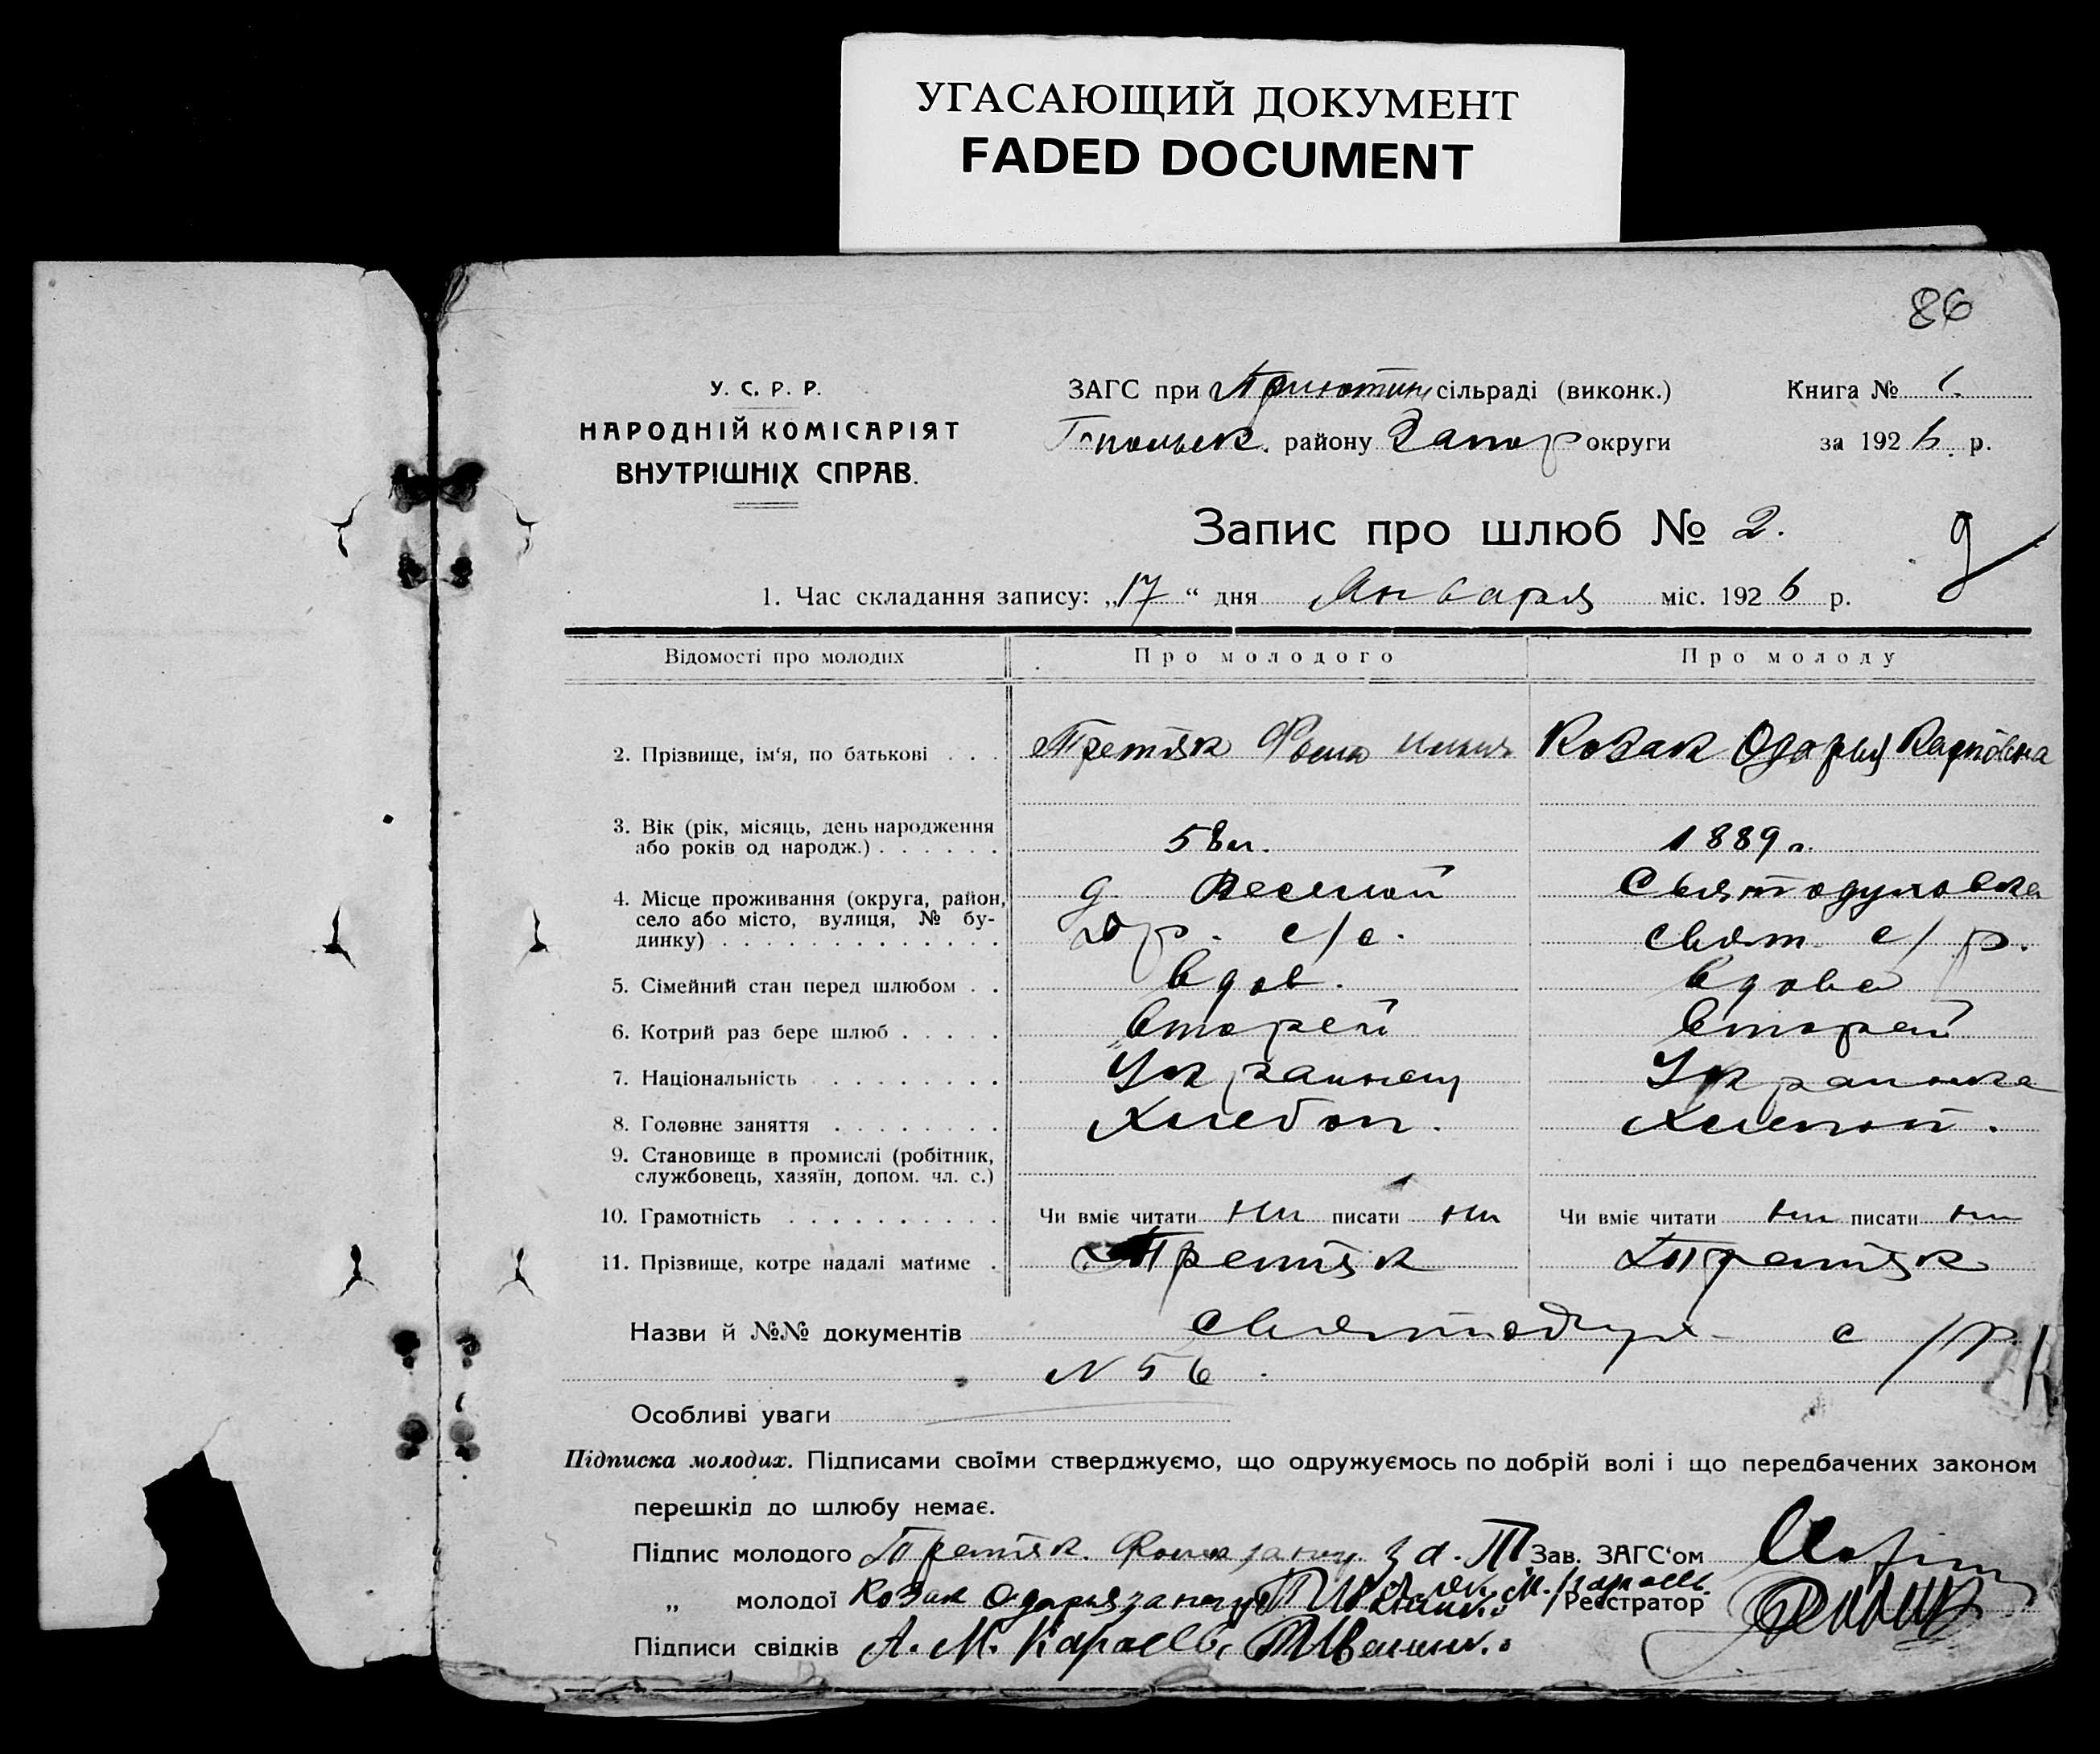 УГАСАЮЩИЙ ДОКУМЕНТ
FADED DOCUMENT
86
У. С. Р. Р.
НАРОДНІЙ КОМІСАРІЯТ
ВНУТРІШНІХ СПРАВ.
ЗАГС при Приютин сільраді (виконк.)
району Запор округи
Книга № 1.
за 1926 р.
Запис про шлюб № 2.
1. Час складання запису: „17“ дня Января міс. 1926 р.
Відомості про молодих Про молодого Про молоду
2. Прізвище, ім‘я, по батькові . . . Третяк Фома Козак Одарья Карповна
3. Вік (рік, місяць, день народження
або років од народж.) . . . . . . 58 л. 1889 г.
4. Місце проживання (округа, район, д. Веселой Святодуховка
село або місто, вулиця, № бу-
динку) . . . . . . . . . . . . . с/с. Свят. с/р.
5. Сімейний стан перед шлюбом . . вдов. вдова
6. Котрий раз бере шлюб . . . . . второй второй
7. Національність . . . . . . . . . Украинец Украинка
8. Головне заняття . . . . . . . . Хлебоп. Хлепоп.
9. Становище в промислі (робітник,
службовець, хазяїн, допом. чл. с.)
10. Грамотність . . . . . . . . . . Чи вміє читати ни писати ни Чи вміє читати ни писати ни
11. Прізвище, котре надалі матиме . Третяк Третяк
Назви й №№ документів Святодух с/р.
N 56
Особливі уваги
Підписка молодих. Підписами своїми стверджуємо, що одружуємось по добрій волі і що передбачених законом
перешкід до шлюбу немає.
Підпис молодого Третяк Фома за Зав. ЗАГС‘ом
„ молодої Козак Одарья за Реєстратор
Підписи свідків А. М.